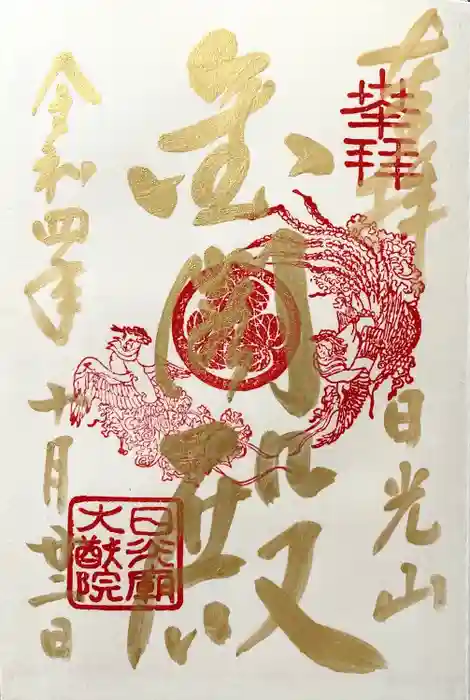 奉拝
日光山
奉拝
金閣殿
令和四年
十月廿三日
日光廟
大猷院